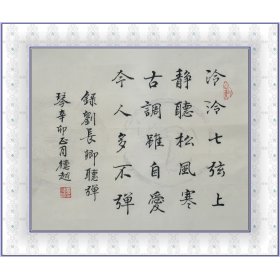 泠泠七弦上
靜聽松風寒
古調雖自愛
今人多不彈
錄劉長卿聽彈
琴辛卯正月德趙